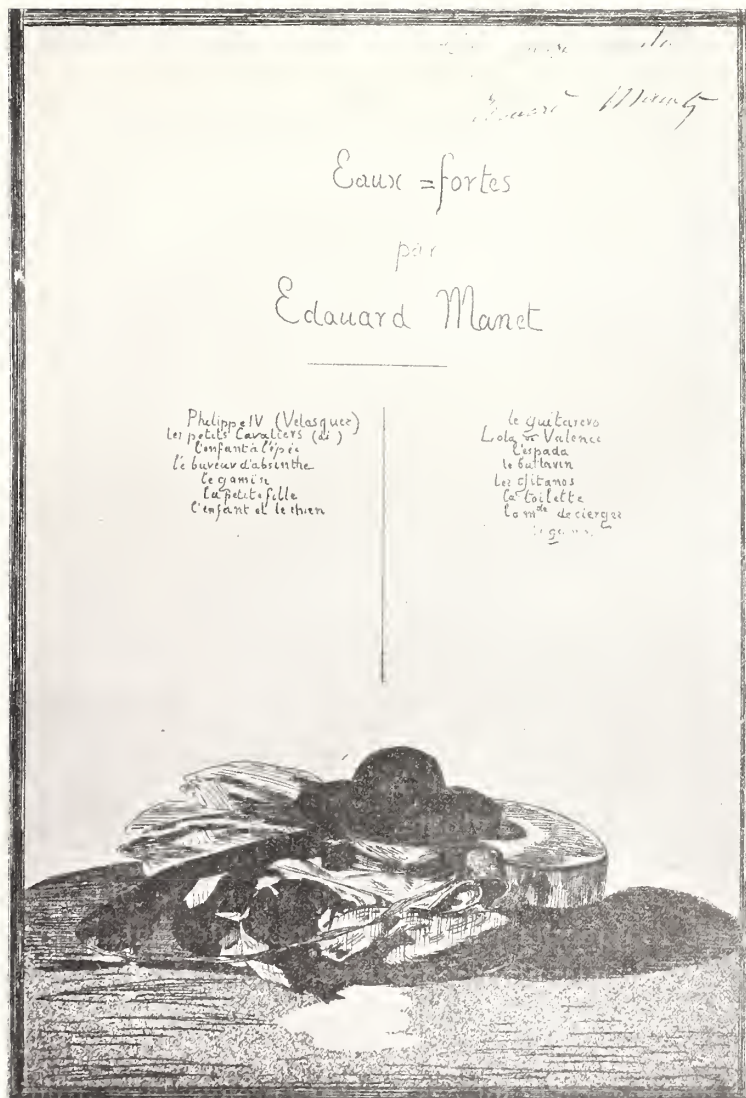 Edouard Manet
Eaux=fortes
par
Edouard Manet
Philippe IV (Velasquez)
les petits Cavaliers (di)
l'enfant à l'épée
le buveur d'absinthe
le gamin
la petite fille
l'enfant et le chien
le guitarero
Lola de Valence
l'espada
le buveur
les gitanos
la toilette
la mde de cierges